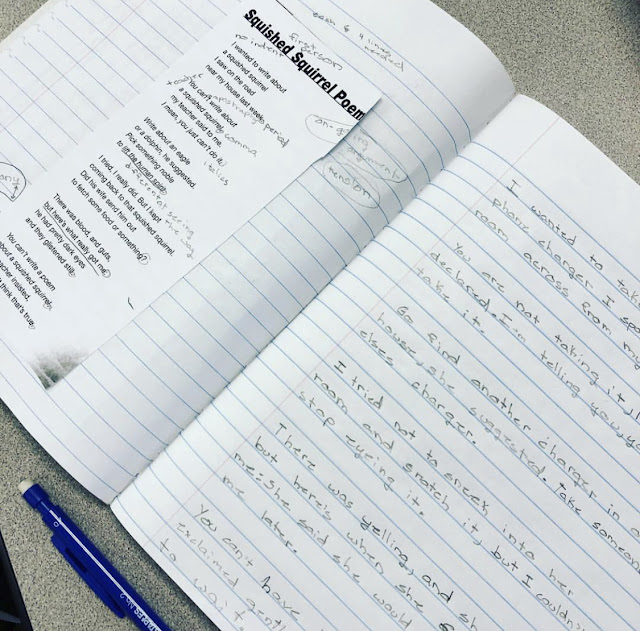 each 4 lines
needed
first
person
no indent
Squished Squirrel Poem
I wanted to write about
a squished squirrel
I saw on the road
near my house last week.
period
apostrophe
You can't write about
a squished squirrel,
comma
my teacher said to me.
I mean, you just can't do it.
italics
on-going
arguments
tension
Write about an eagle
or a dolphin, he suggested.
Pick something noble
to lift the human spirit.
different
seeing
the
way
I tried. I really did. But I kept
coming back to that squished squirrel.
Did his wife send him out
to fetch some food or something?
There was blood, and guts,
but here's what really got me:
he had pretty dark eyes
and they glistened still.
You can't write a poem
about a squished squirrel,
teacher insisted.
think that's true.
I wanted to take
phone charger I
room across from my
You are not taking it,
declared. I'm telling you,
take it.
Go find another charger in
house, she suggested. Take someone
elses charger.
I tried not to sneek into her
room and snatch it, but I couldn't
stop eyeing it.
There was yelling, and
but here's when she
me: she said she would
me later.
You can't have
exclaimed
to wait
STAEDTLER No 2